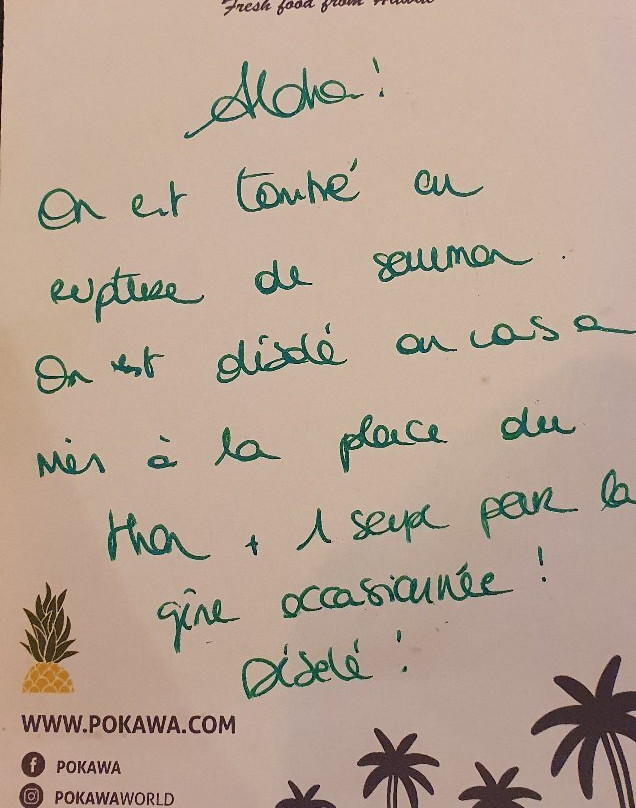 Fresh food from Hawaii
Aloha !
On est tombé en
rupture de saumon.
On est disolé on vas a
mis à la place du
thon + 1 soupe pour la
gêne occasionnée !
Disolé !
WWW.POKAWA.COM
POKAWA
POKAWAWORLD